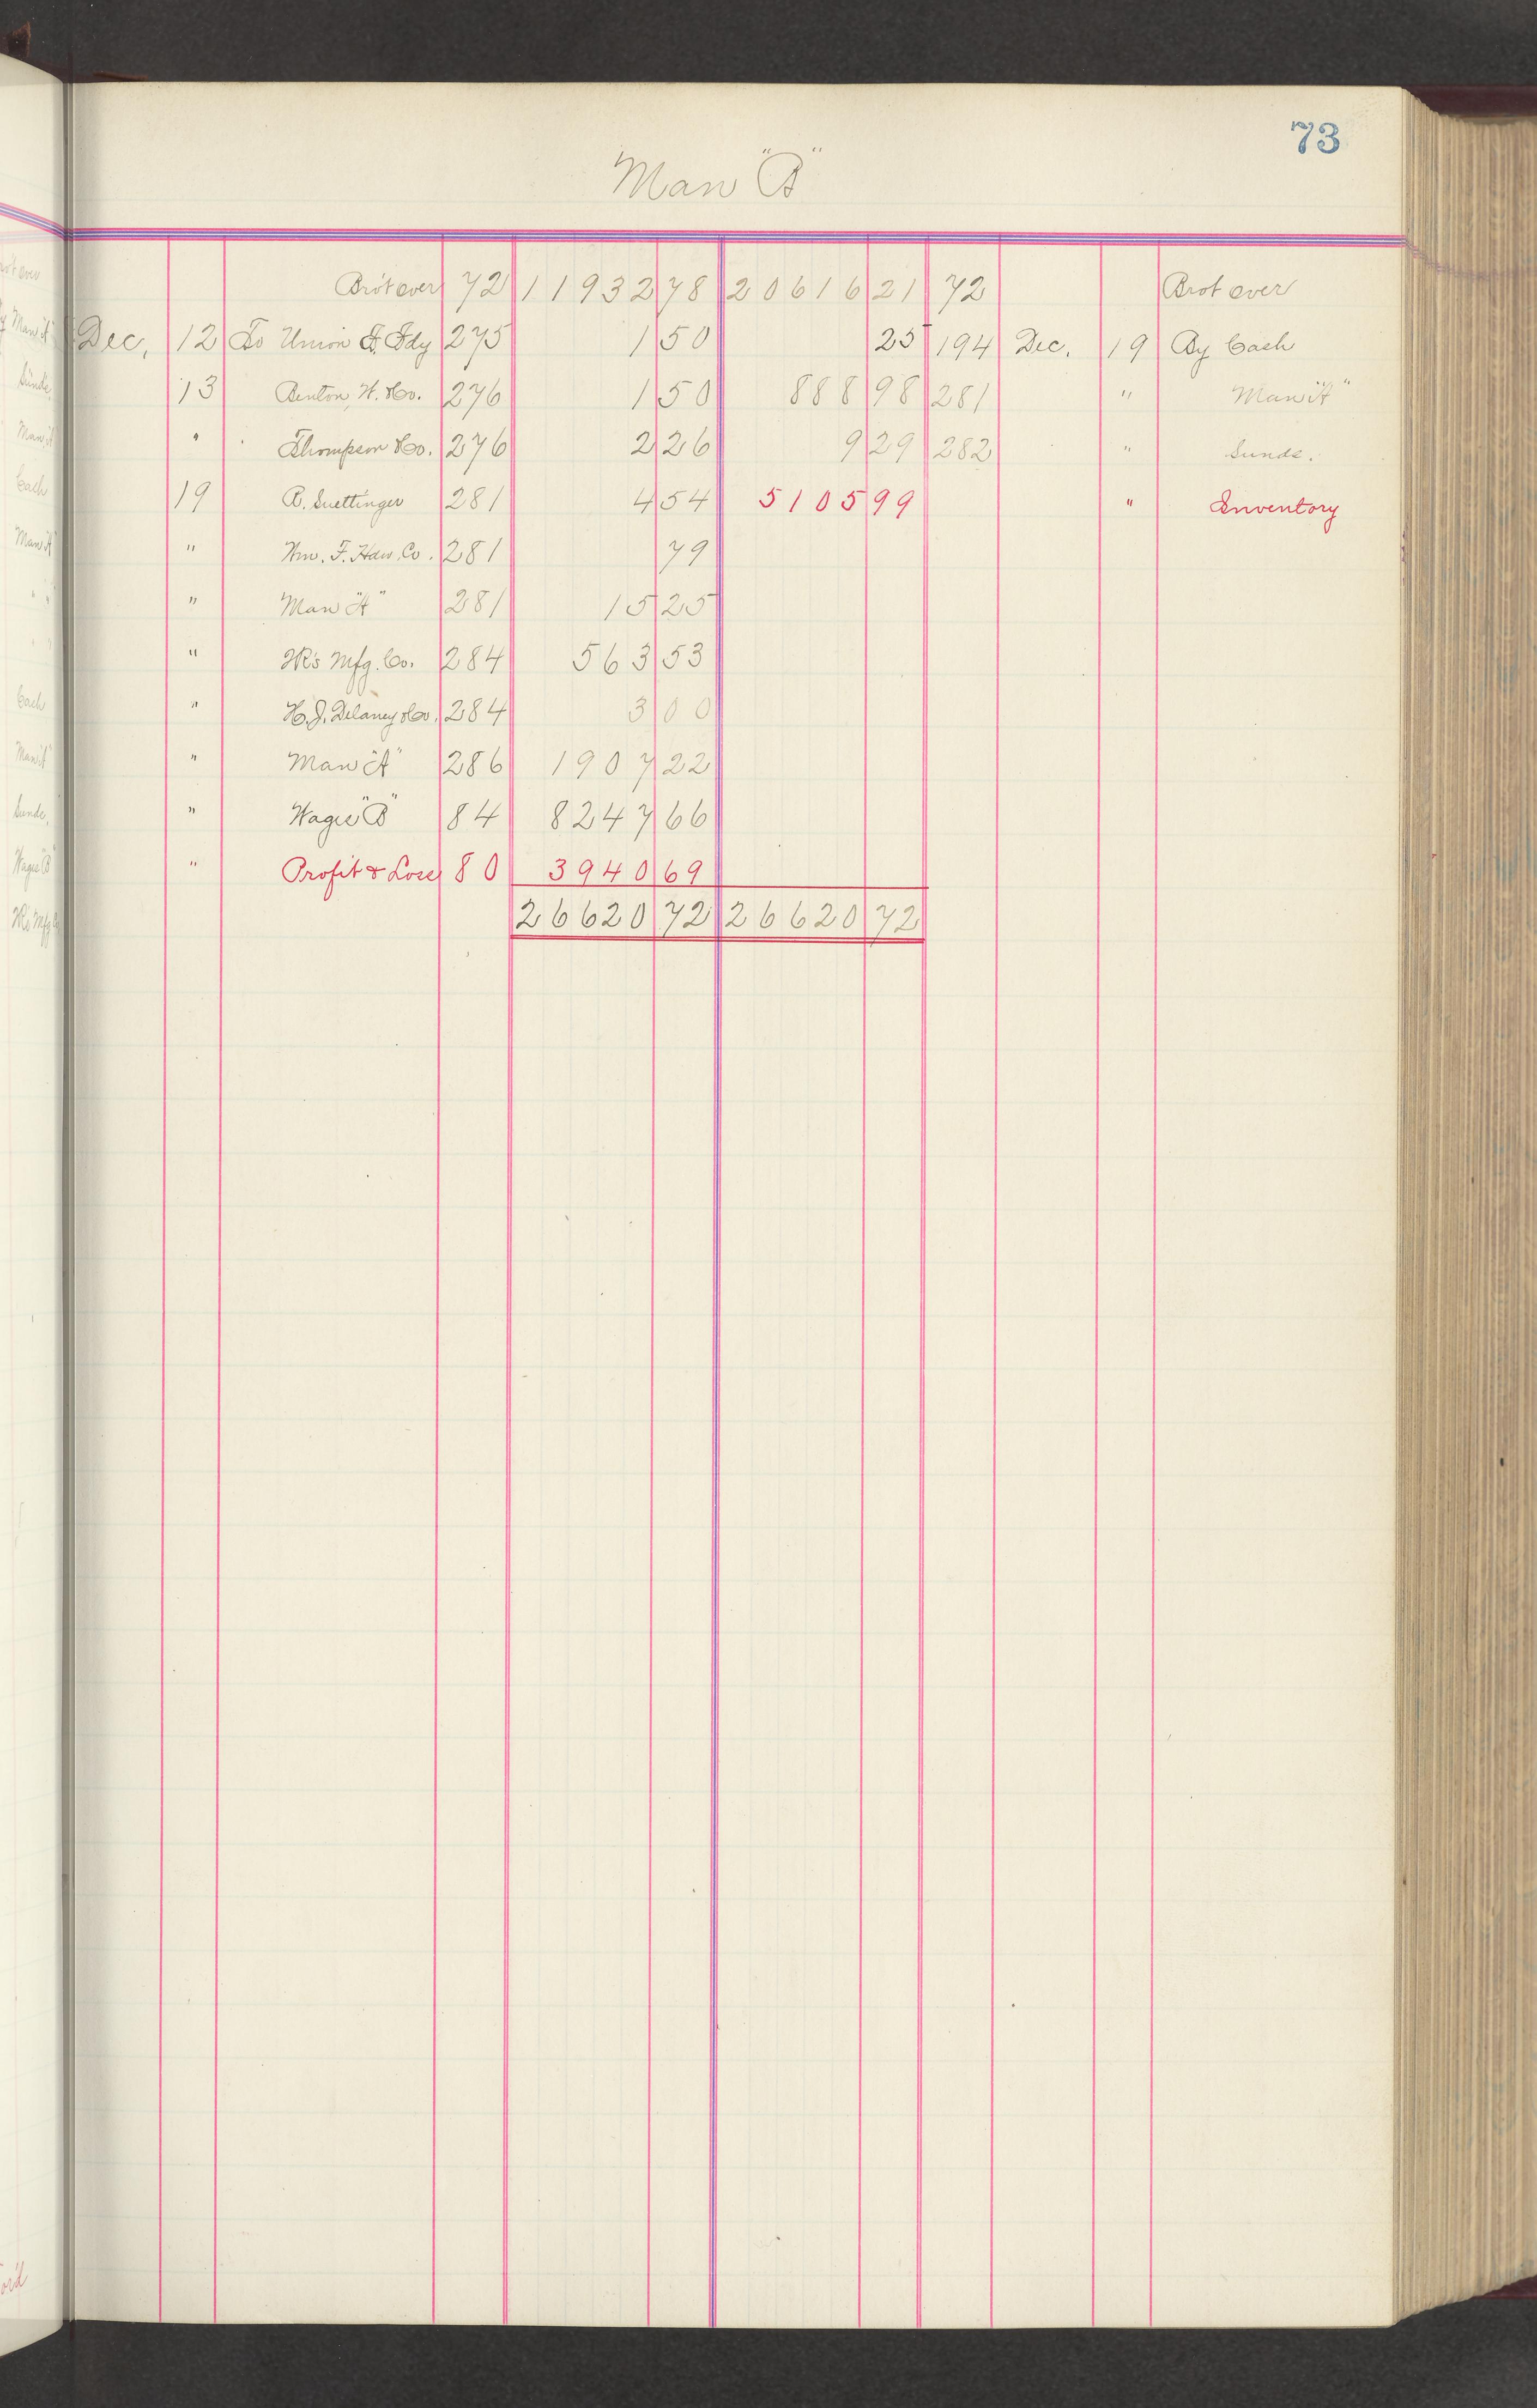 73
Man "B"
Bro't over 72 11932 78 20616 21 72 Brot over
Dec. 12 To Union F. Fdy 275 1 50 25 194 Dec. 19 By Cash
13 Benton, H. Co. 276 1 50 888 98 281 " Man "A"
" Thompson Co. 276 2 26 9 29 282 " Sunds.
19 B. Suettinger 281 4 54 5105 99 " Inventory
" Wm. F. Hdw. Co. 281 79
" Man "A" 281 15 25
" Mfg. Co. 284 563 53
" H. J. Delaney Co. 284 3 00
" Man "A" 286 1907 22
" Wages "B" 84 8247 66
" Profit & Loss 80 3940 69
26620 72 26620 72